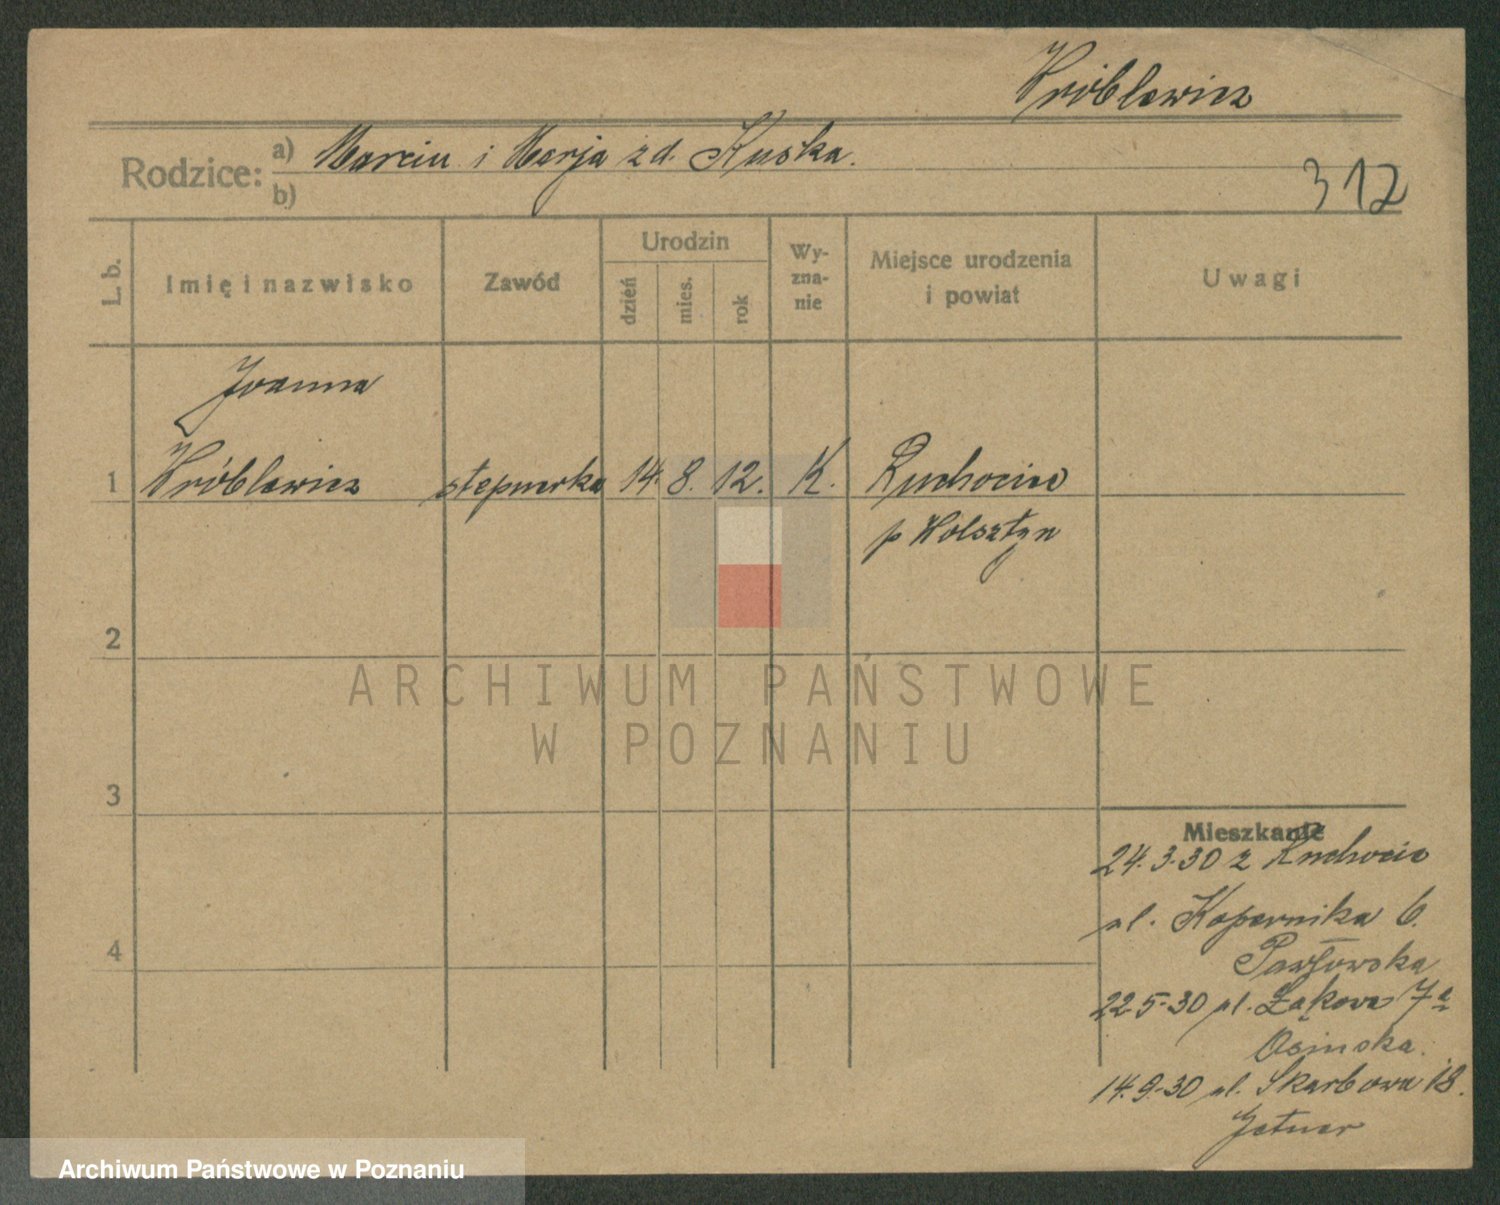 Wróblewicz
Rodzice: a) Marcin i Marja zd. Kuska.
b)
312
L. b.
Imię i nazwisko
Zawód
Urodzin
dzień
mies.
rok
Wy-
zna-
nie
Miejsce urodzenia
i powiat
Uwagi
Joanna
1 Wróblewicz stepnerka 14. 8. 12. K. Ruchocice
p Wolsztyn
2
ARCHIWUM PAŃSTWOWE
W POZNANIU
3
Mieszkanie
24.3.30 z Ruchocic
ul. Kopernika 6.
4
Pawłowska
22.5.30 ul. Łąkowa 7a
Osinska.
14.9.30 ul. Skarbowa 18.
Archiwum Państwowe w Poznaniu